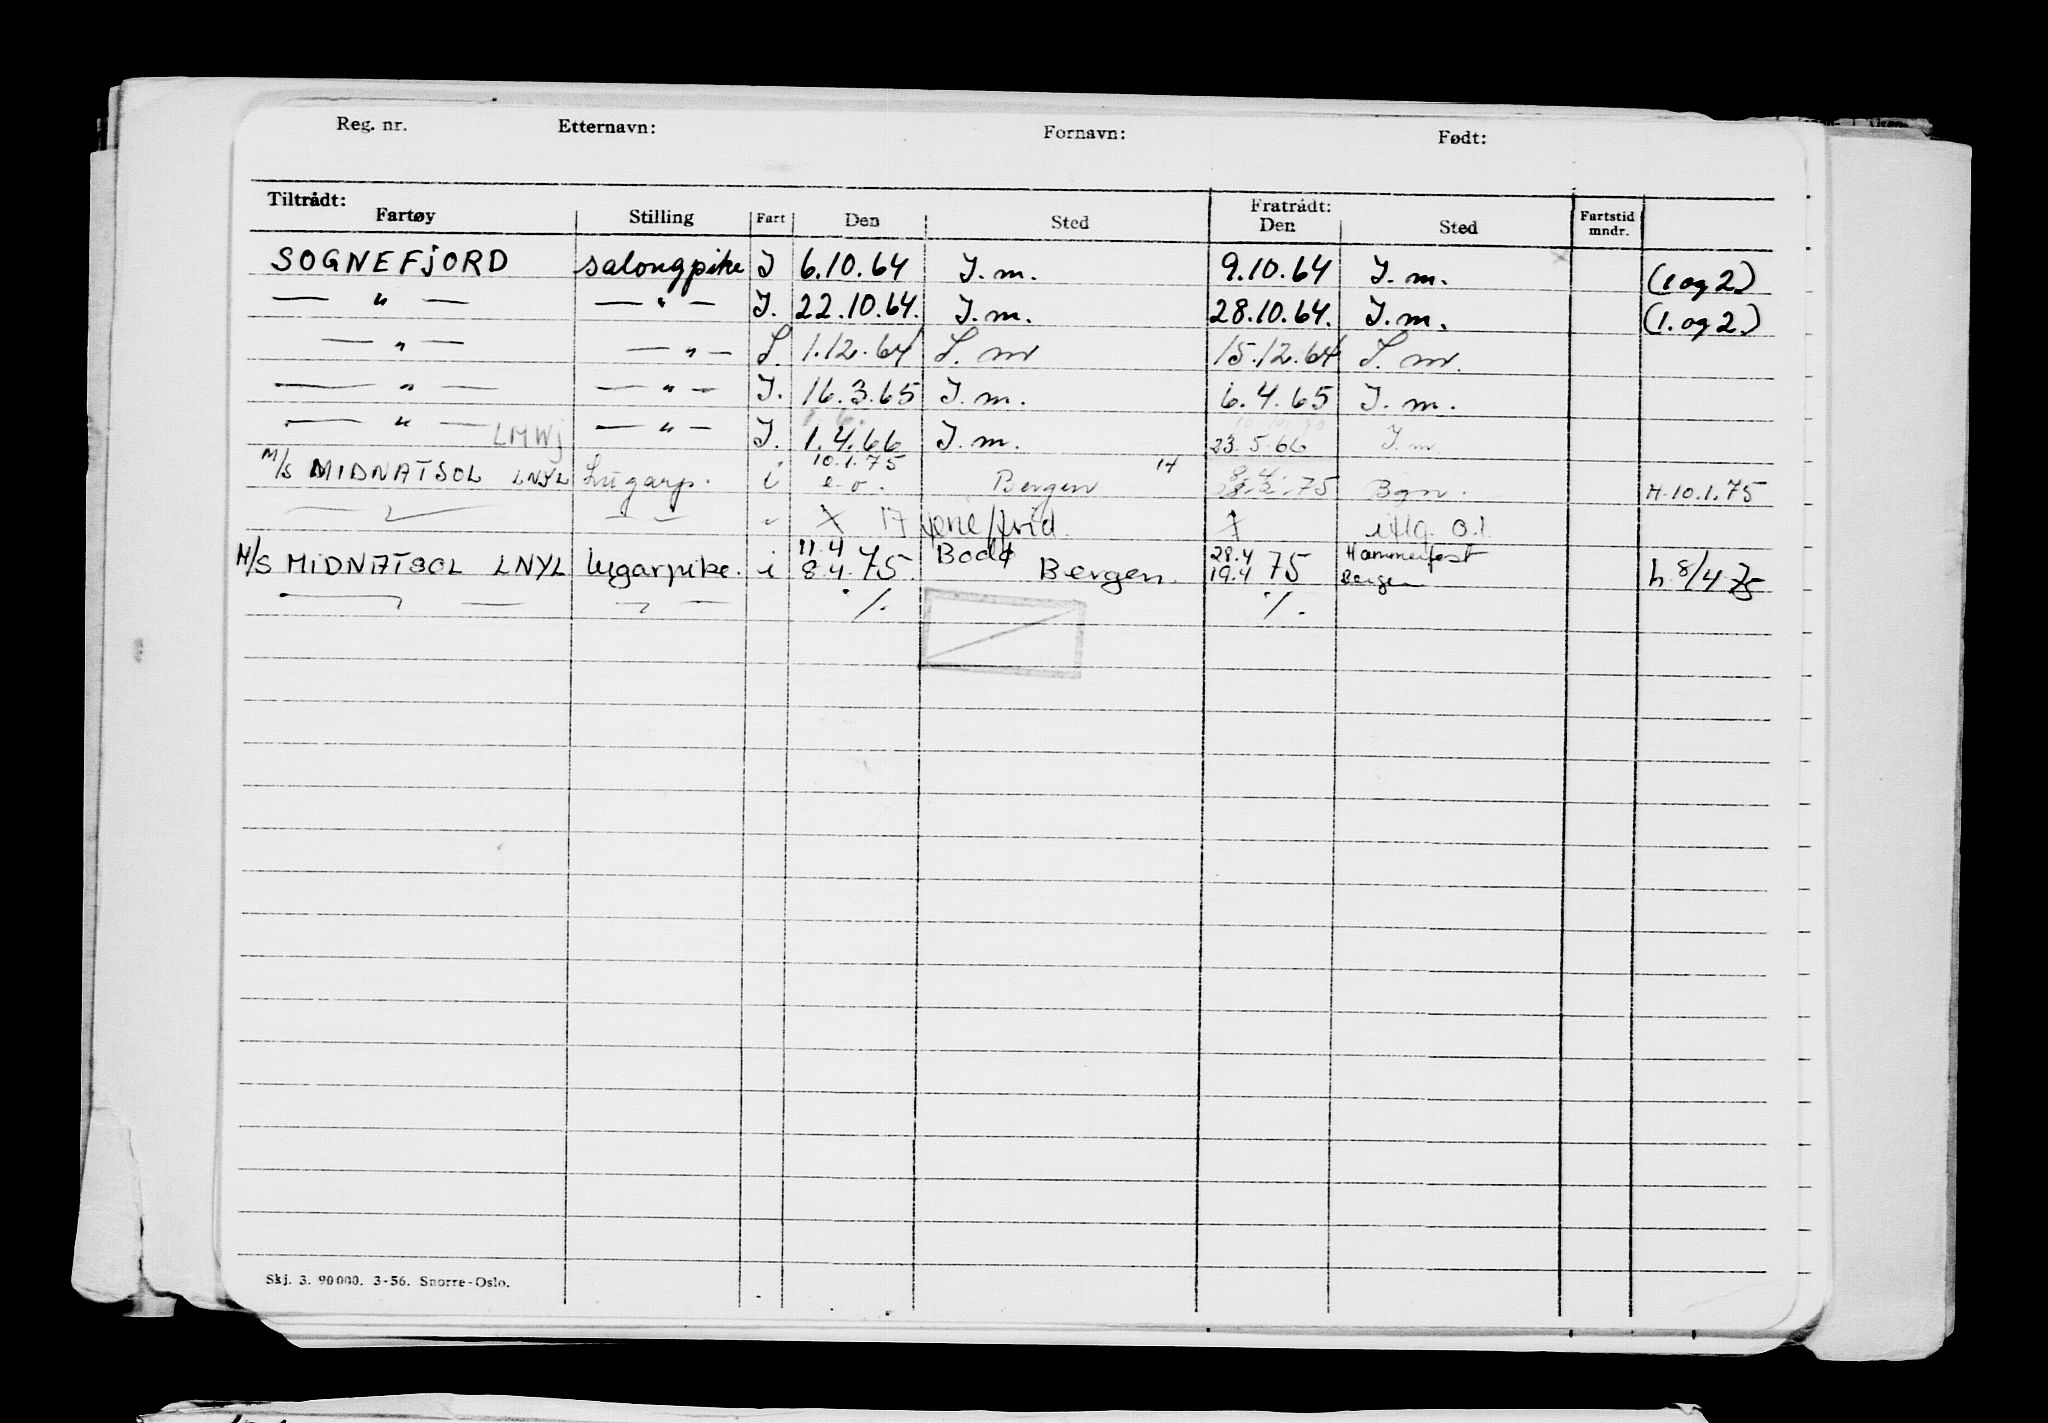 Reg. nr. Etternavn: Fornavn: Født:
Tiltrådt: Fratrådt:
Fartøy Stilling Fart Den Sted Den Sted Fartstid mndr.
SOGNEFJORD salongpike I 6.10.64 I.m. 9.10.64 I.m. (1 og 2)
— " — — " — I. 22.10.64. I.m. 28.10.64. I.m. (1. og 2.)
— " — — " — I. 1.12.64 I.m 15.12.64 I.m.
— " — — " — I. 16.3.65 I.m. 6.4.65 I.m.
— " — LMWJ — " — I. 1.4.66 I.m. 23.5.66 I.m.
10.1.75 14
M/S MIDNATSOL LNYL Lugarp. i e.o. Bergen 75 Bgn. H.10.1.75
17
11.4 Bodø 28.4 Hammerfest
M/S MIDNATSOL LNYL lugarpike. i 8.4.75. Bergen. 19.4 75 Bergen h.8/4 75
./. ./.
Skj. 3. 90000. 3-56. Snorre-Oslo.